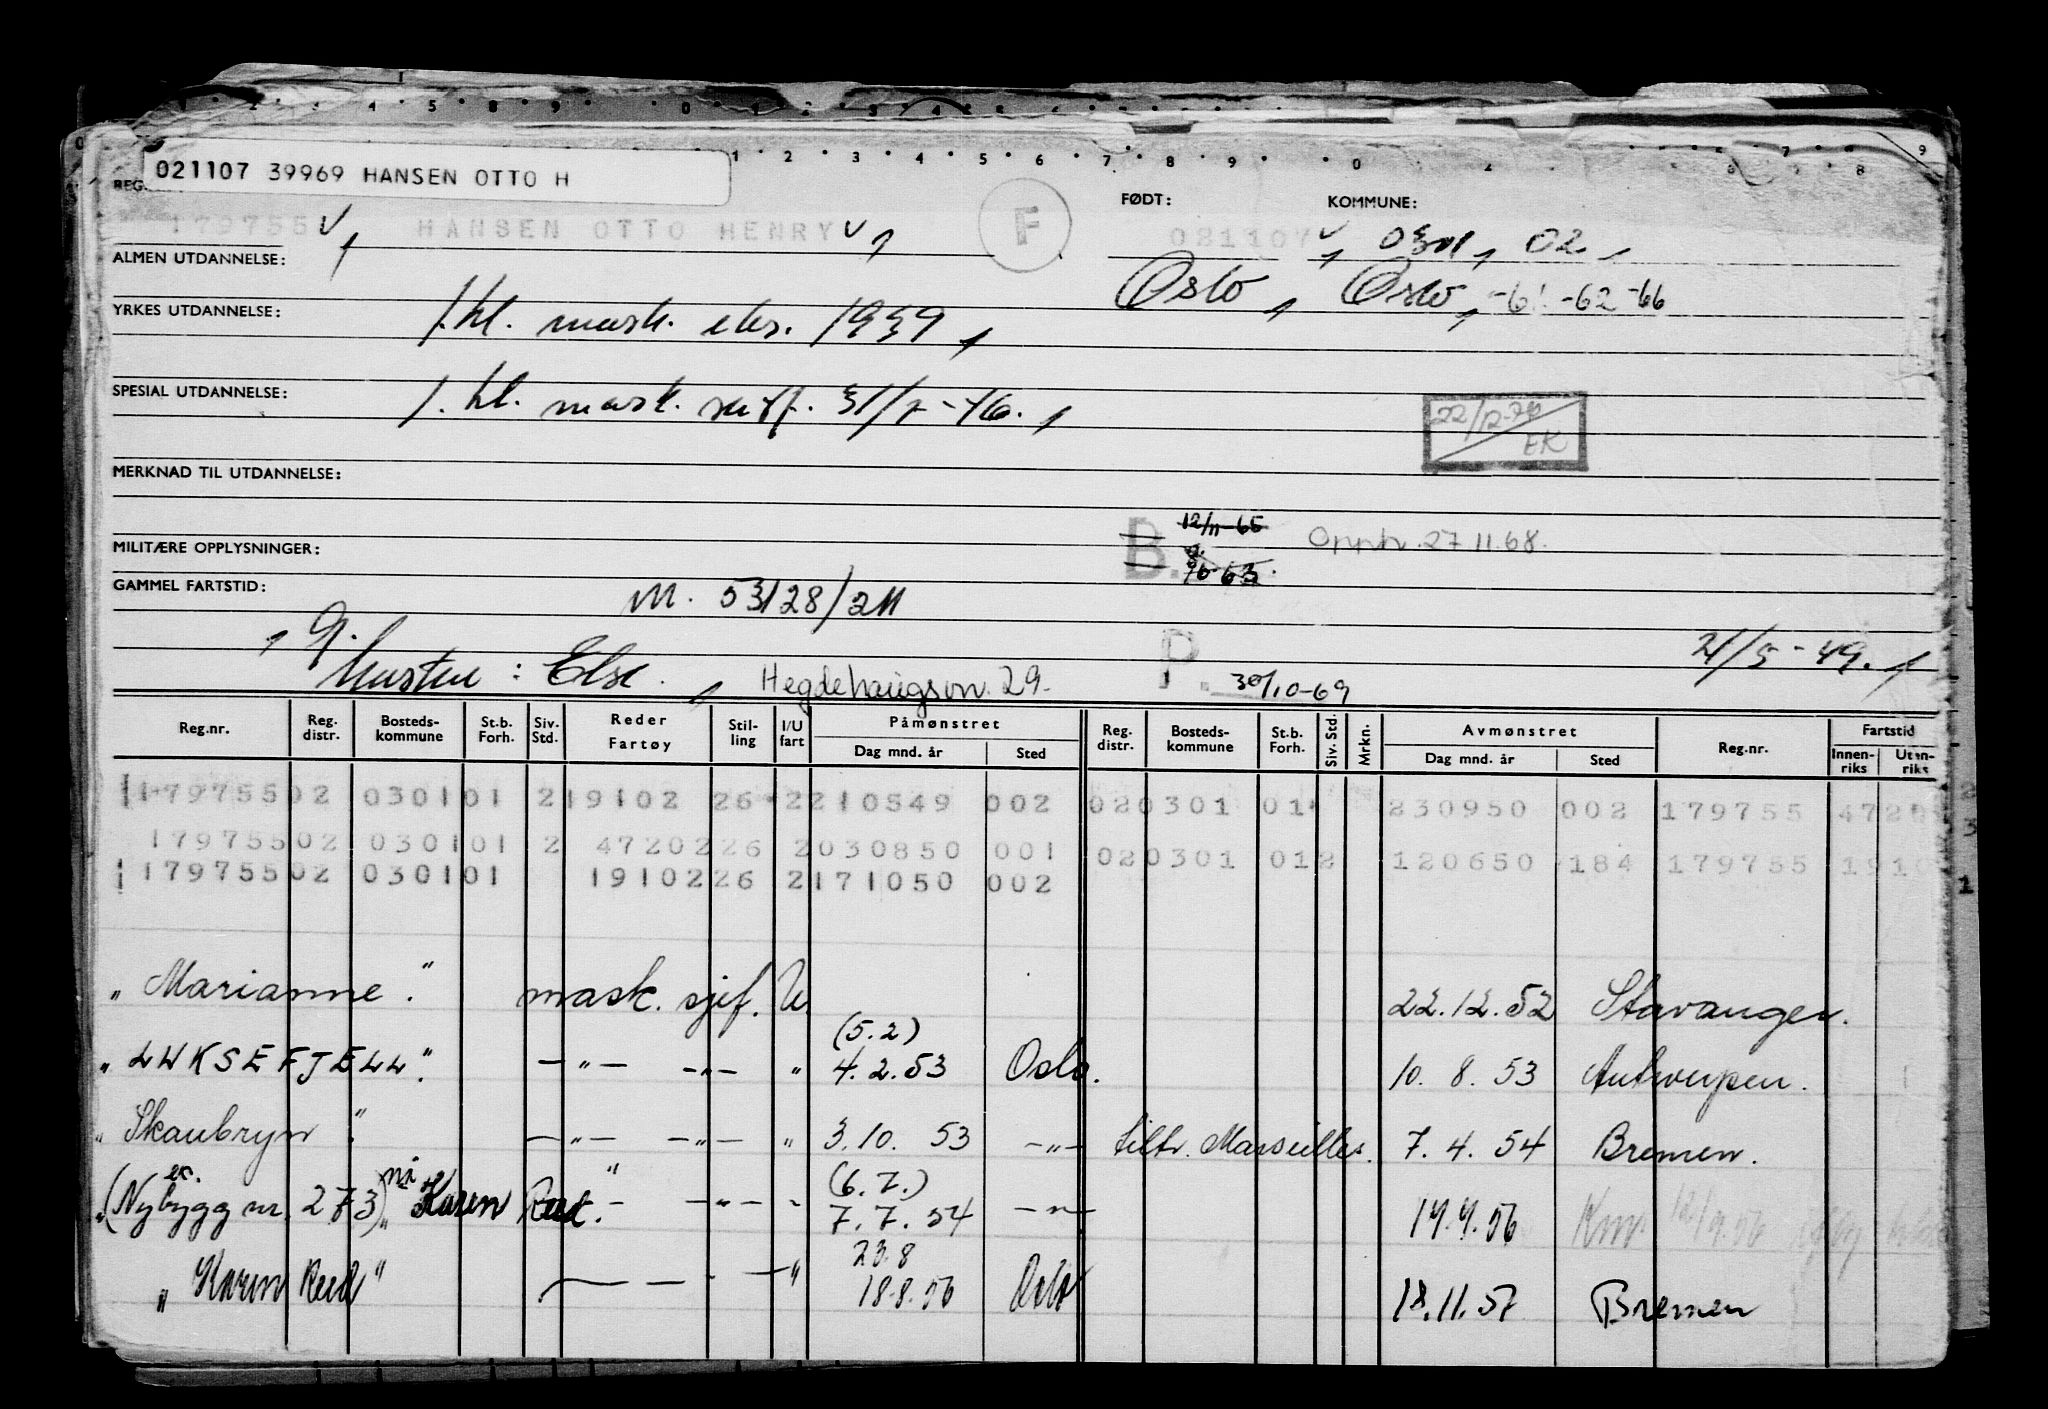 021107 39969 HANSEN OTTO H
REG.
FØDT: KOMMUNE:
179755 HANSEN OTTO HENRY F 021107 0301, 02,
ALMEN UTDANNELSE:
Oslo, Oslo, -61 -62 -66
YRKES UTDANNELSE: 1. kl. mask. eks. 1939,
SPESIAL UTDANNELSE: 1. kl. mask. sertf. 31/7-46.,
22/12-70
EK
MERKNAD TIL UTDANNELSE:
B. 12/11-65 Opph. 27.11.68.
MILITÆRE OPPLYSNINGER:
GAMMEL FARTSTID: M. 53128/211
, Gj.
Hustru: Else., Hegdehaugsvn. 29. P. 30/10-69 21/5-49.,
Reg.nr. Reg. distr. Bosteds-kommune St.b. Forh. Siv. Std. Reder Fartøy Stil-ling I/U fart Påmønstret Dag mnd. år Sted Reg. distr. Bosteds-kommune St.b. Forh. Siv. Std. Mrkn. Avmønstret Dag mnd. år Sted Reg.nr. Fartstid Innen-riks Uten-riks
179755 02 0301 01 2 19102 26 2 210549 002 02 0301 01 230950 002 179755 472
179755 02 0301 01 2 47202 26 2 030850 001 02 0301 01 2 120650 184 179755 191
179755 02 0301 01 19102 26 2 171050 002
„Marianne." mask. sjef. U. 22.12.52 Stavanger.
(5.2)
„LUKSEFJELL." —„— —„— „ 4.2.53 Oslo. 10. 8. 53 Antwerpen.
„Skaubryn." —„— —„— „ 3.10. 53 —„— tiltr. Marseilles. 7. 4. 54 Bremen.
ex. nå (6.7.)
„(Nybygg nr. 273)„ Karen Reed." — —„— „ 7.7.54 —„— 19.9.56
23.8
„Karen Reed" — — — „ 18.8.56 Oslo 18.11.57 Bremen